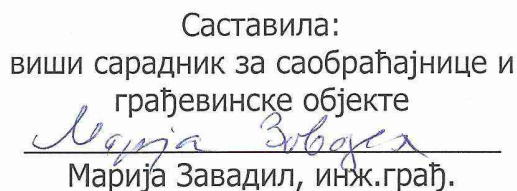 Саставила:
виши сарадник за саобраћајнице и
грађевинске објекте
Марија Завадил
Марија Завадил, инж.грађ.